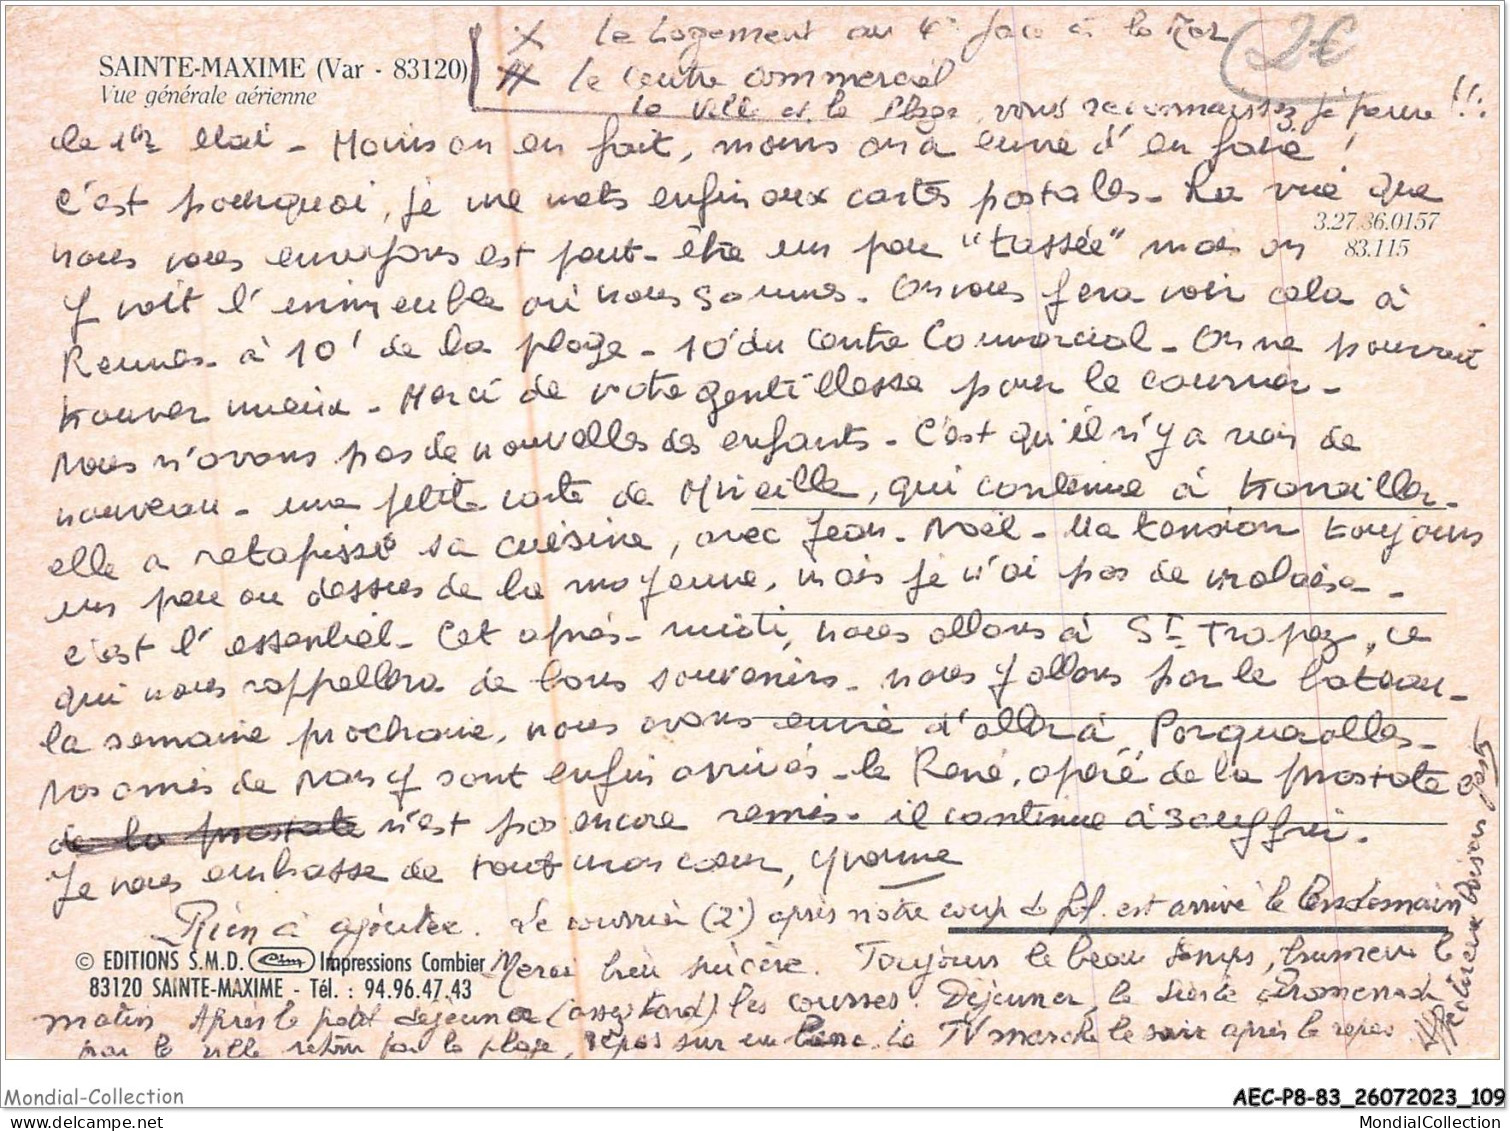 X le Logement au 4e face à la Mer
2€
SAINTE-MAXIME (Var - 83120)
Vue générale aérienne
# le Centre Commercial
la Ville et la Plage, vous reconnaissez je pense !!
le 1er Mai - Moins on en fait, moins on a envie d'en faire !
c'est pourquoi, je me mets enfin aux cartes postales - La vue que
3.27.86.0157
83.115
nous vous envoyons est peut-être un peu "tassée" mais on
y voit l'immeuble où nous sommes. On vous fera voir cela à
Rennes - à 10' de la plage - 10' du Centre Commercial - On ne pouvait
trouver mieux - Merci de votre gentillesse pour le courrier -
Nous n'avons pas de nouvelles des enfants - C'est qu'il n'y a rien de
nouveau - une petite carte de Mireille, qui continue à travailler -
elle a retapissé sa cuisine, avec Jean-Noël - Ma tension toujours
un peu au dessus de la moyenne, mais je n'ai pas de malaise -
c'est l'essentiel - Cet après-midi, nous allons à St Tropez, ce
qui nous rappellera de bons souvenirs - nous y allons par le bateau -
la semaine prochaine, nous avons envie d'aller à Porquerolles -
Nos amis de Nancy sont enfin arrivés - le René, opéré de la prostate
de la prostate n'est pas encore remis - il continue à souffrir.
Je vous embrasse de tout mon cœur, Yvonne
Rien à ajouter. Le courrier (2e) après notre coup de fil est arrivé le lendemain
© EDITIONS S.M.D. Cim Impressions Combier
Merci bien sincère. Toujours le beau temps, brumeux le
83120 SAINTE-MAXIME - Tél. : 94.96.47.43
matin Après le petit déjeuner (assez tard) les courses. Déjeuner, la sieste Promenade
par la ville retour par la plage, repos sur un banc. La TV marche le soir après le repas
baisers
Mondial-Collection
AEC-P8-83_26072023_109
mondialcollection
MondialCollection